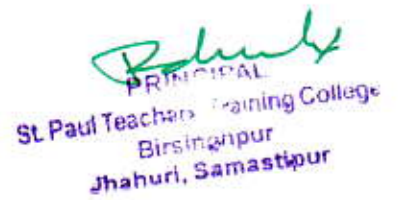 PRINCIPAL
St. Paul Teachers Training College
Birsinghpur
Jhahuri, Samastipur